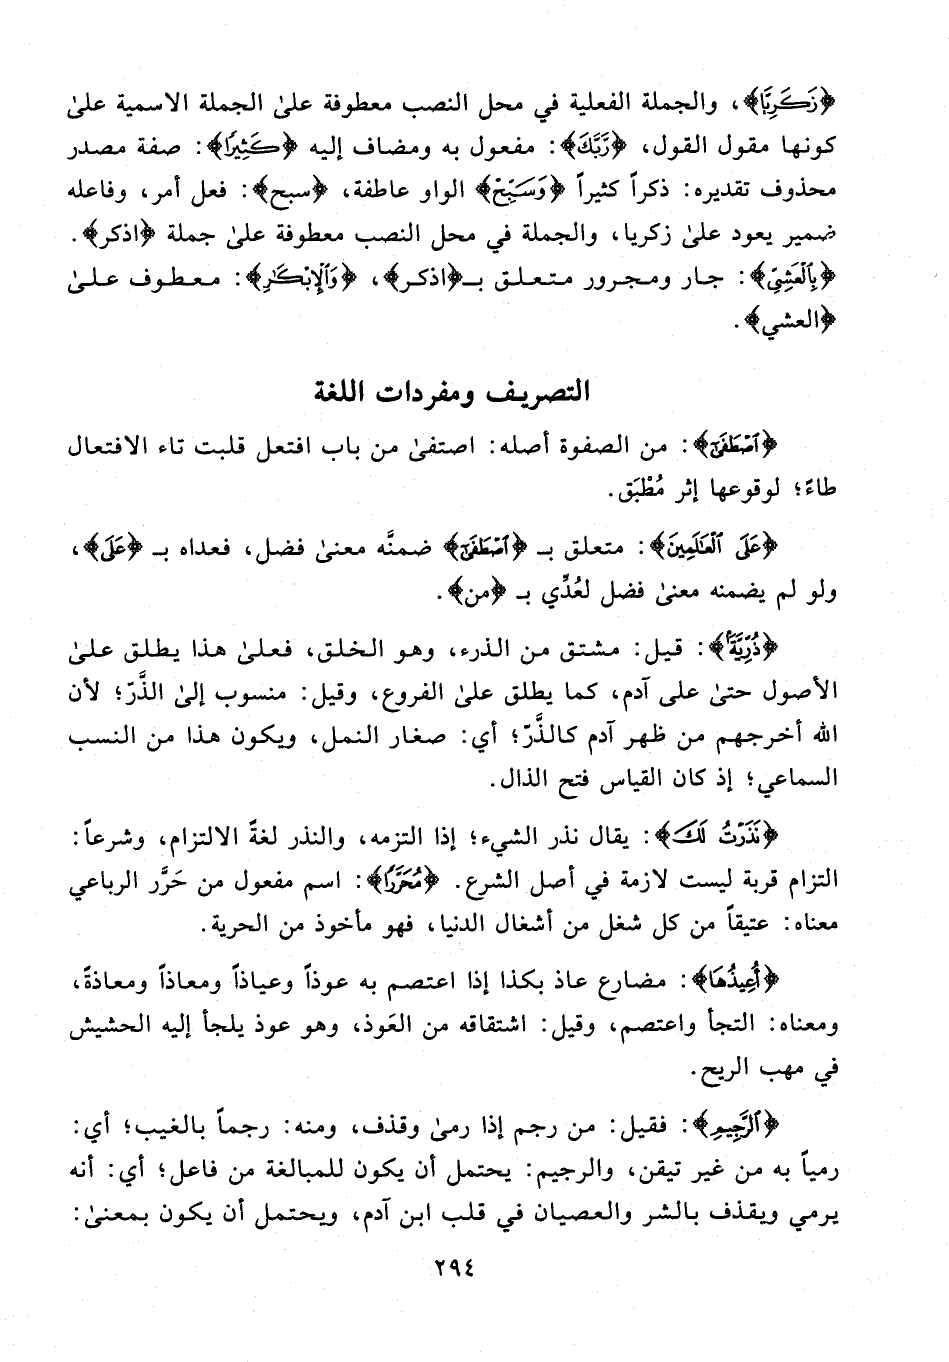 ﴿زَكَرِيَّا﴾، والجملة الفعلية في محل النصب معطوفة علىٰ الجملة الاسمية علىٰ
كونها مقول القول، ﴿رَّبَّكَ﴾: مفعول به ومضاف إليه ﴿كَثِيرًا﴾: صفة مصدر
محذوف تقديره: ذكراً كثيراً ﴿وَسَبِّحْ﴾ الواو عاطفة، ﴿سبح﴾: فعل أمر، وفاعله
ضمير يعود علىٰ زكريا، والجملة في محل النصب معطوفة علىٰ جملة ﴿اذكر﴾.
﴿بِٱلْعَشِيِّ﴾: جار ومجرور متعلق بـ﴿اذكر﴾، ﴿وَٱلْإِبْكَٰرِ﴾: معطوف علىٰ
﴿العشي﴾.
التصريف ومفردات اللغة
﴿ٱصْطَفَىٰٓ﴾: من الصفوة أصله: اصتفىٰ من باب افتعل قلبت تاء الافتعال
طاءً؛ لوقوعها إثر مُطْبَق.
﴿عَلَى ٱلْعَٰلَمِينَ﴾: متعلق بـ ﴿ٱصْطَفَىٰٓ﴾ ضمنَّه معنىٰ فضل، فعداه بـ ﴿عَلَى﴾،
ولو لم يضمنه معنىٰ فضل لعُدِّي بـ ﴿من﴾.
﴿ذُرِّيَّةً﴾: قيل: مشتق من الذرء، وهو الخلق، فعلىٰ هذا يطلق علىٰ
الأصول حتىٰ على آدم، كما يطلق علىٰ الفروع، وقيل: منسوب إلىٰ الذَّرّ؛ لأن
الله أخرجهم من ظهر آدم كالذَّرّ؛ أي: صغار النمل، ويكون هذا من النسب
السماعي؛ إذ كان القياس فتح الذال.
﴿نَذَرْتُ لَكَ﴾: يقال نذر الشيء؛ إذا التزمه، والنذر لغةً الالتزام، وشرعاً:
التزام قربة ليست لازمة في أصل الشرع. ﴿مُحَرَّرًا﴾: اسم مفعول من حَرَّر الرباعي
معناه: عتيقاً من كل شغل من أشغال الدنيا، فهو مأخوذ من الحرية.
﴿أُعِيذُهَا﴾: مضارع عاذ بكذا إذا اعتصم به عوذاً وعياذاً ومعاذاً ومعاذةً،
ومعناه: التجأ واعتصم، وقيل: اشتقاقه من العَوذ، وهو عوذ يلجأ إليه الحشيش
في مهب الريح.
﴿ٱلرَّجِيمِ﴾: فقيل: من رجم إذا رمىٰ وقذف، ومنه: رجماً بالغيب؛ أي:
رمياً به من غير تيقن، والرجيم: يحتمل أن يكون للمبالغة من فاعل؛ أي: أنه
يرمي ويقذف بالشر والعصيان في قلب ابن آدم، ويحتمل أن يكون بمعنىٰ:
٢٩٤